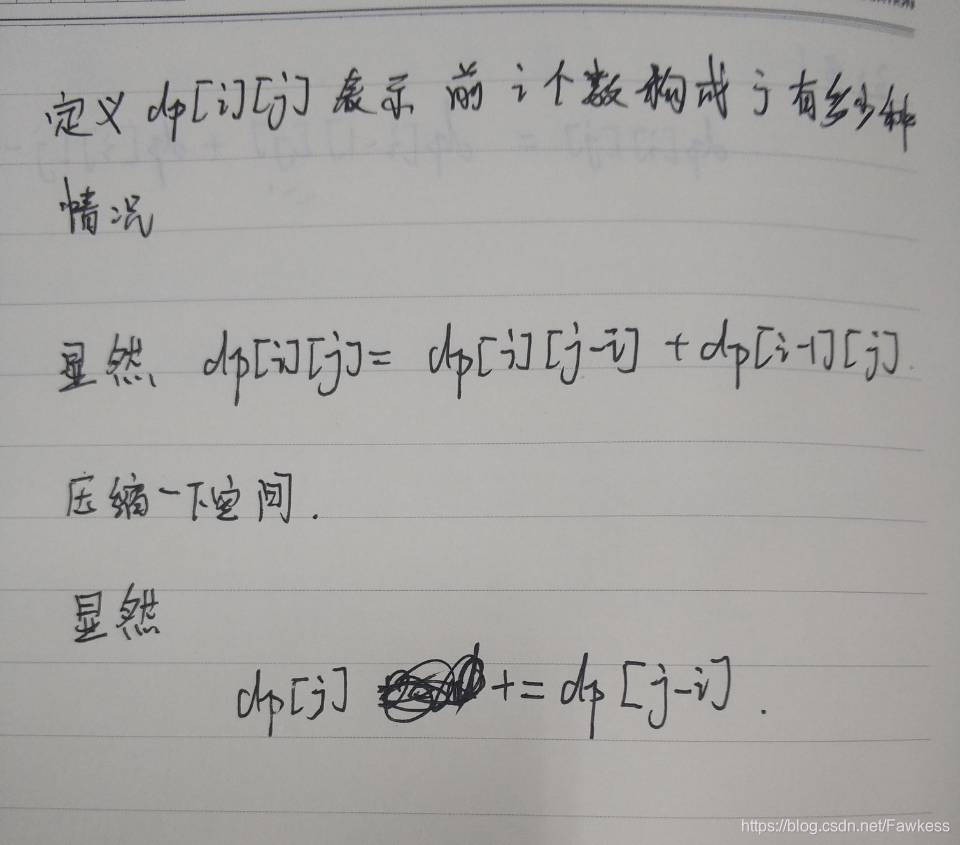 定义 dp[i][j] 表示 前 i 个数构成 j 有多少种
情况
显然 dp[i][j] = dp[i][j-i] + dp[i-1][j].
压缩一下空间.
显然
dp[j] += dp[j-i].
https://blog.csdn.net/Fawkess